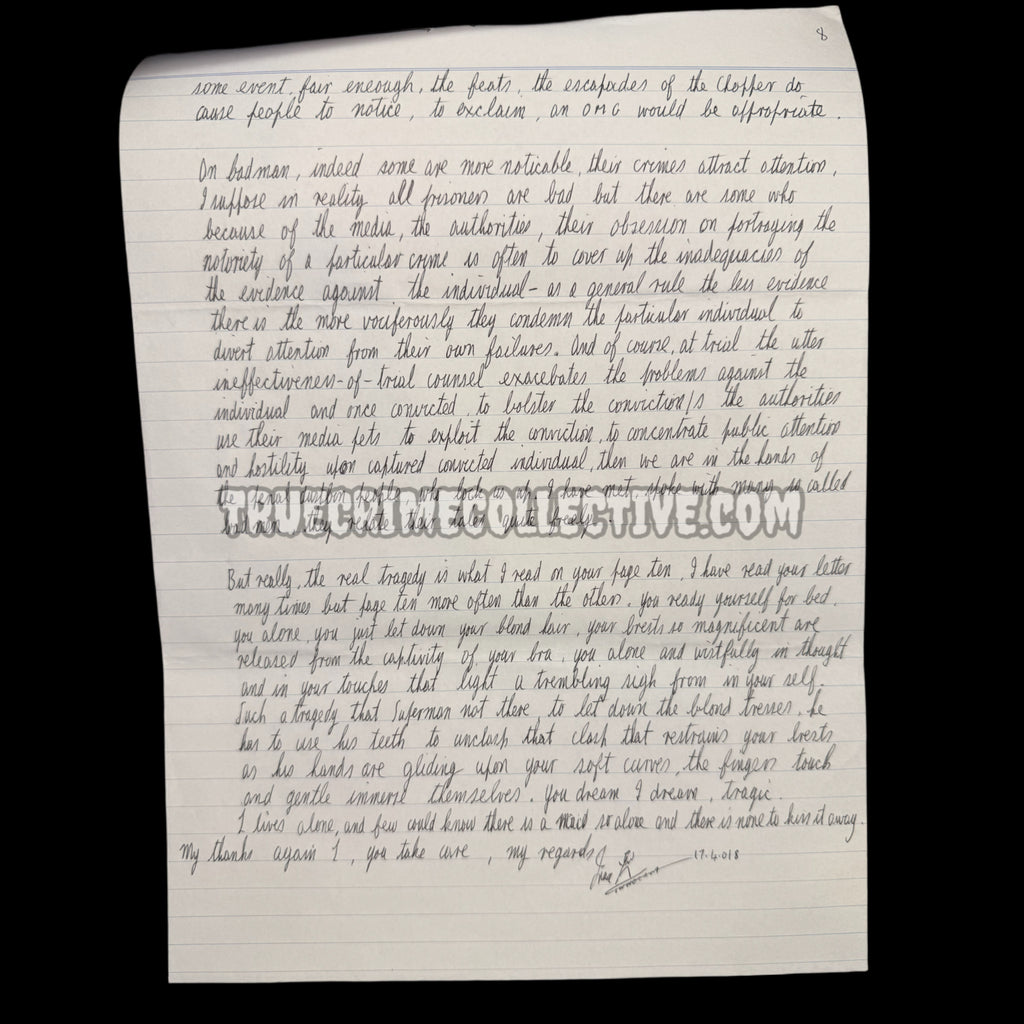 8
some event, fair eneough, the feats, the escapades of the Chopper do
cause people to notice, to exclaim, an OMG would be appropriate.
On badman, indeed some are more noticable, their crimes attract attention,
I suppose in reality all prisoners are bad but there are some who
because of the media, the authorities, their obsession on portraying the
notoriety of a particular crime is often to cover up the inadequacies of
the evidence against the individual - as a general rule the less evidence
there is the more vociferously they condemn the particular individual to
divert attention from their own failures. And of course, at trial the utter
ineffectiveness-of-trial counsel exacebates the problems against the
individual and once convicted, to bolster the conviction/s the authorities
use their media pets to exploit the conviction, to concentrate public attention
and hostility upon captured convicted individual, then we are in the hands of
the penal custion people who lock us up. I have met, spoke with many so called
TRUECRIMECOLLECTIVE.COM
badman they relate their tales quite freely.
But really, the real tragedy is what I read on your page ten, I have read your letter
many times but page ten more often than the others. you ready yourself for bed,
you alone, you just let down your blond hair, your brests so magnificent are
released from the captivity of your bra, you alone and wistfully in thought
and in your touches that light a trembling sigh from in your self.
Such a tragedy that Superman not there, to let down the blond tresses, he
has to use his teeth to unclasp that clasp that restrains your brests
as his hands are gliding upon your soft curves, the fingers touch
and gentle immerse themselves. You dream I dream, tragic.
lives alone, and few could know there is a maid so alone and there is none to kiss it away.
My thanks again, you take care, my regards
17.4.018
INNOCENT